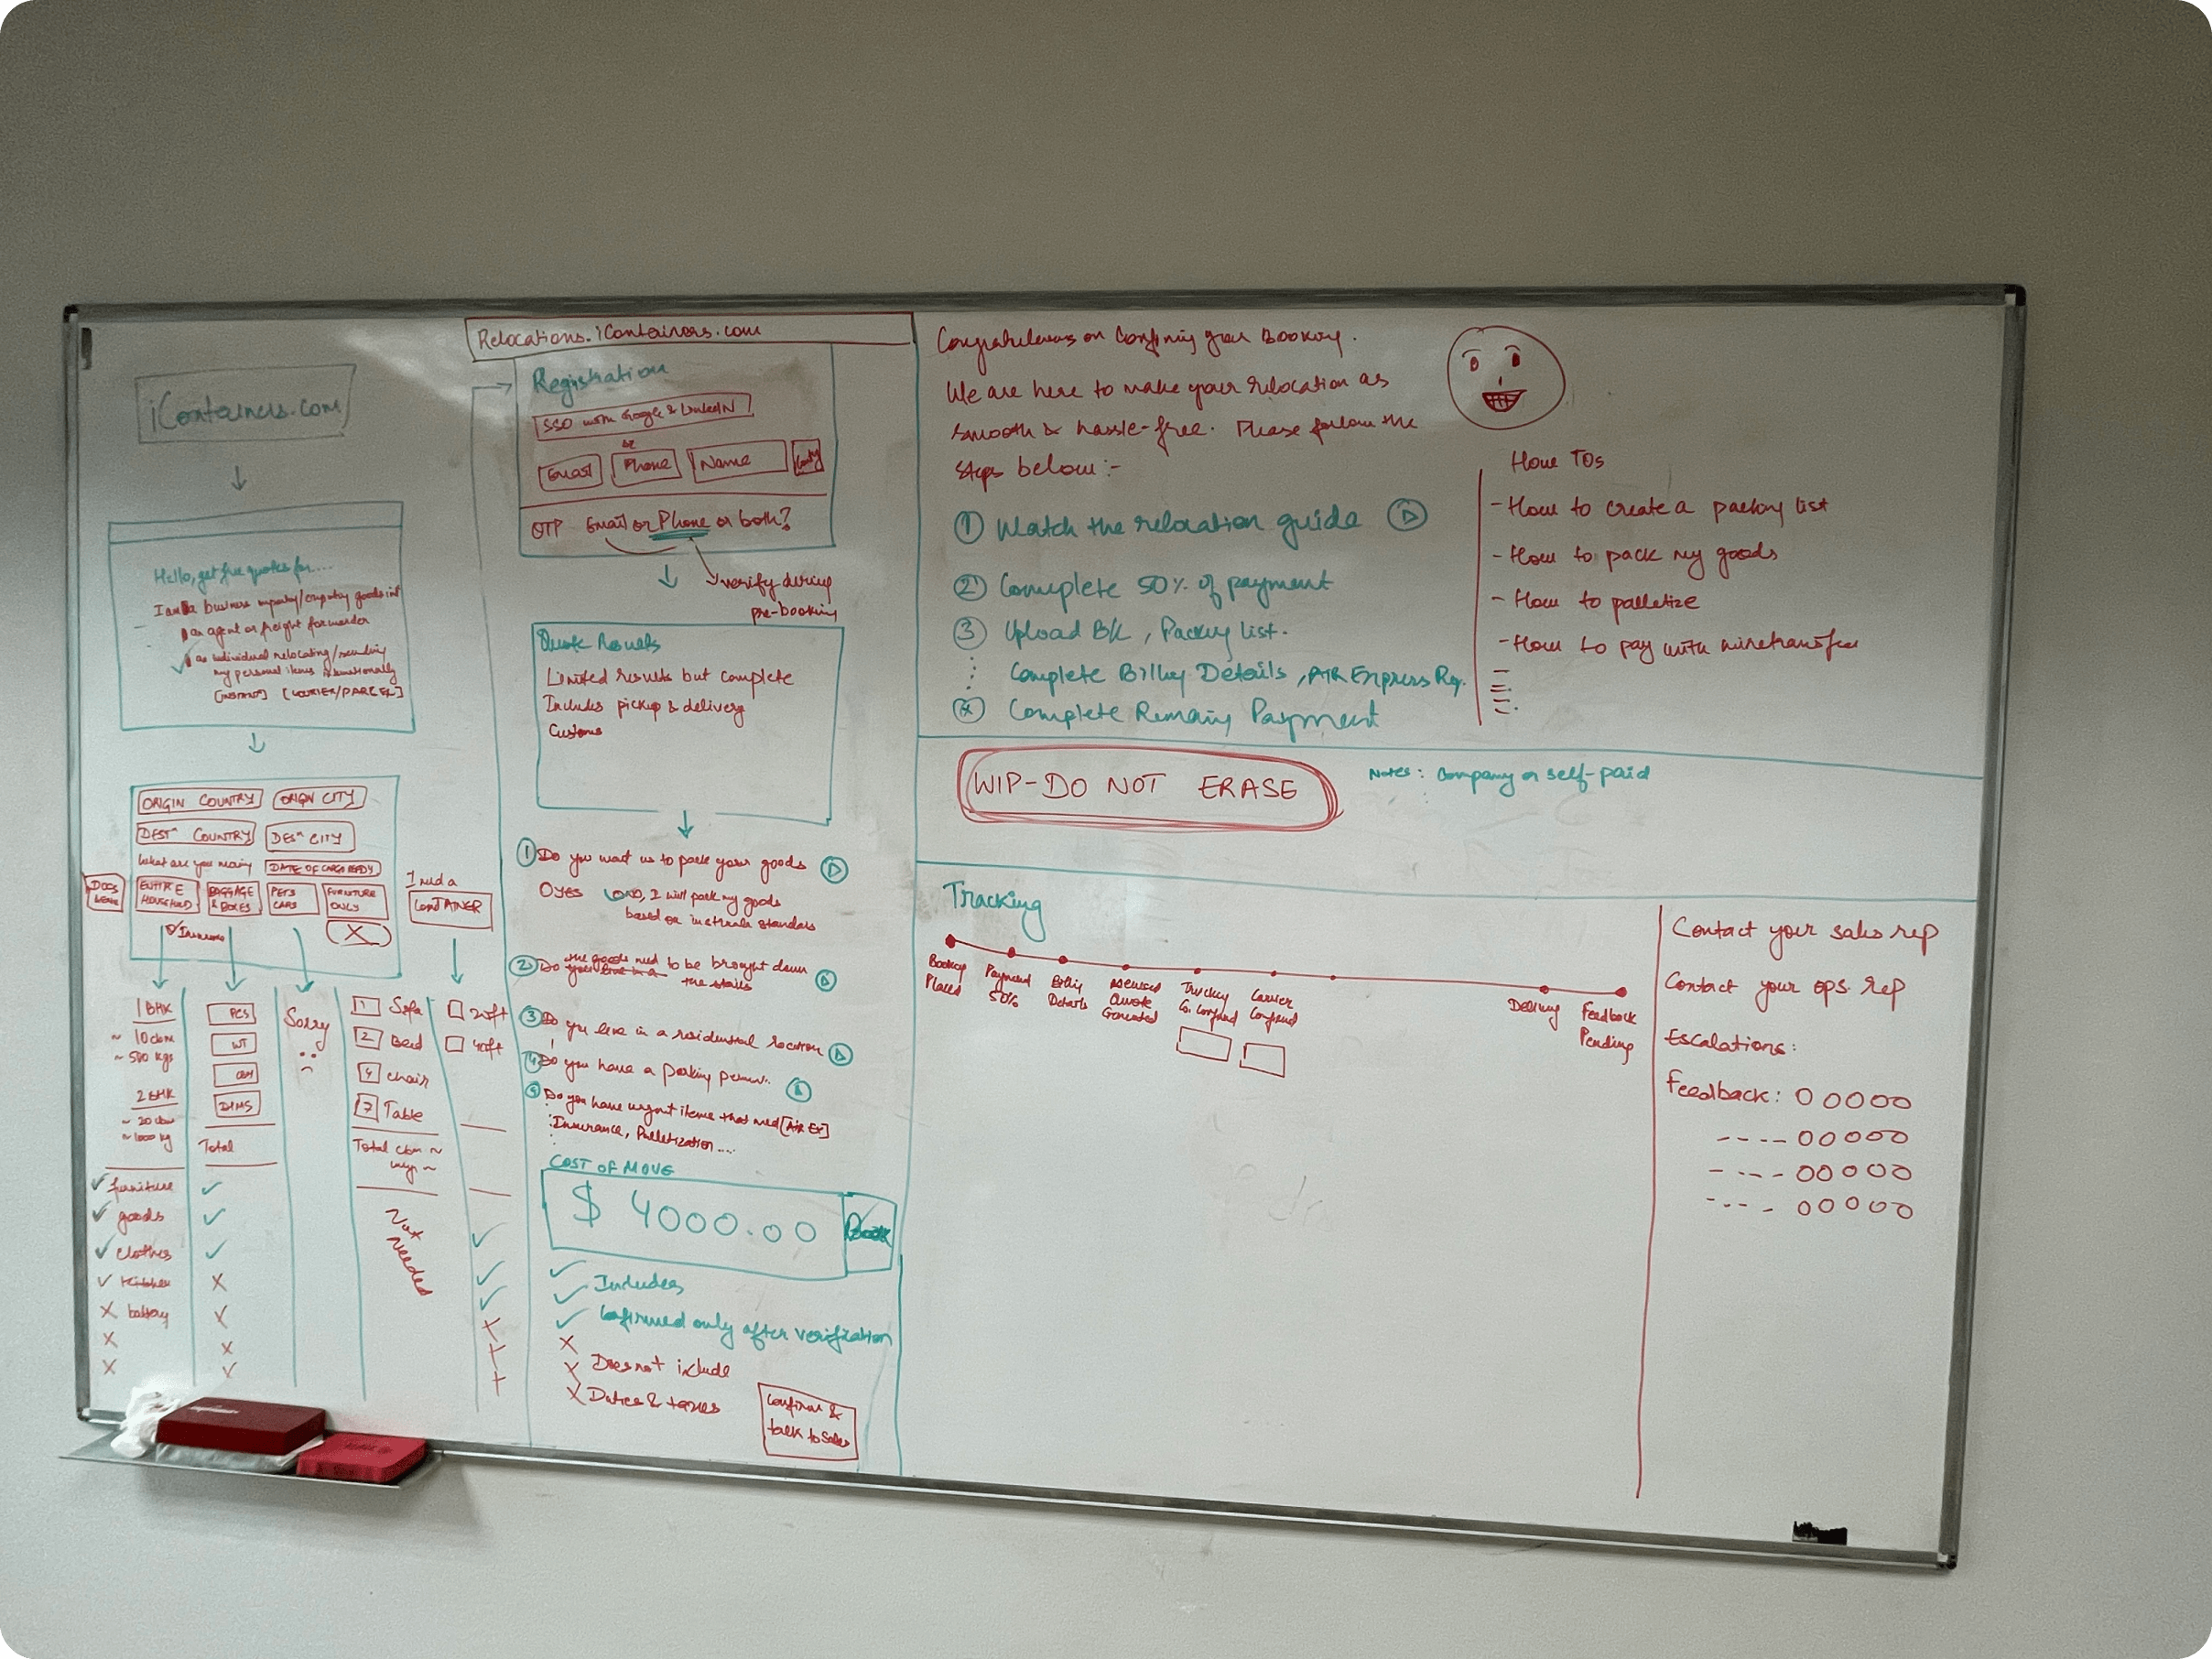 iContainers.com
Hello, get free quotes for....
I am a business importing/exporting goods int
an agent or freight forwarder
an individual relocating/sending
my personal items internationally
[COURIER/PARCEL]
ORIGIN COUNTRY
ORIGIN CITY
DESTN COUNTRY
DESN CITY
What are you moving
DATE OF CARGO READY
DOCS
ENTIRE HOUSEHOLD
BAGGAGE & BOXES
PETS CARS
FURNITURE ONLY
X
I need a
CONTAINER
1 BHK
~ 10 cbm
~ 500 kgs
2 BHK
~ 20 cbm
~ 1000 kg
PCS
WT
CBM
DIMS
Total
Sorry
1 Sofa
2 Bed
4 chair
7 Table
Total cbm ~
wgt ~
20ft
40ft
✓ furniture ✓
✓ goods ✓
✓ clothes ✓
✓ kitchen X
X battery ✓
X X
X ✓
Not Needed
Relocations.iContainers.com
Registration
SSO with Google & LinkedIN
or
Email
Phone
Name
OTP Email or Phone or both?
verify during
pre-booking
Quote Results
Limited results but complete
Includes pickup & delivery
Customs
1 Do you want us to pack your goods
O YES O NO, I will pack my goods
based on
2 Do the goods need to be brought down
the stairs
3 Do you live in a residential location
4 Do you have a parking permit.
5 Do you have urgent items that need [Air Ex]
Insurance, Palletization....
COST OF MOVE
$ 4000.00
Book
✓ Includes
✓ Confirmed only after verification
X
X Does not include
X Duties & taxes
Confirm &
talk to sales
Congratulations on Confirming your Booking.
We are here to make your relocation as
smooth & hassle-free. Please follow the
steps below:-
1 Watch the relocation guide
2 Complete 50% of payment
3 Upload BK, Packing list.
Complete Billing Details, AIR Express Rq.
Complete Remaing Payment
How TOs
- How to create a packing list
- How to pack my goods
- How to palletize
- How to pay with wiretransfer
WIP-DO NOT ERASE
Notes: Company or self-paid
Tracking
Booking Placed
Payment 50%
Billing Details
Revised Quote Generated
Trucking Co. Confirmed
Carrier Confirmed
Delivery
Feedback Pending
Contact your sales rep
Contact your ops rep
Escalations:
Feedback: O O O O O
---- O O O O O
---- O O O O O
---- O O O O O